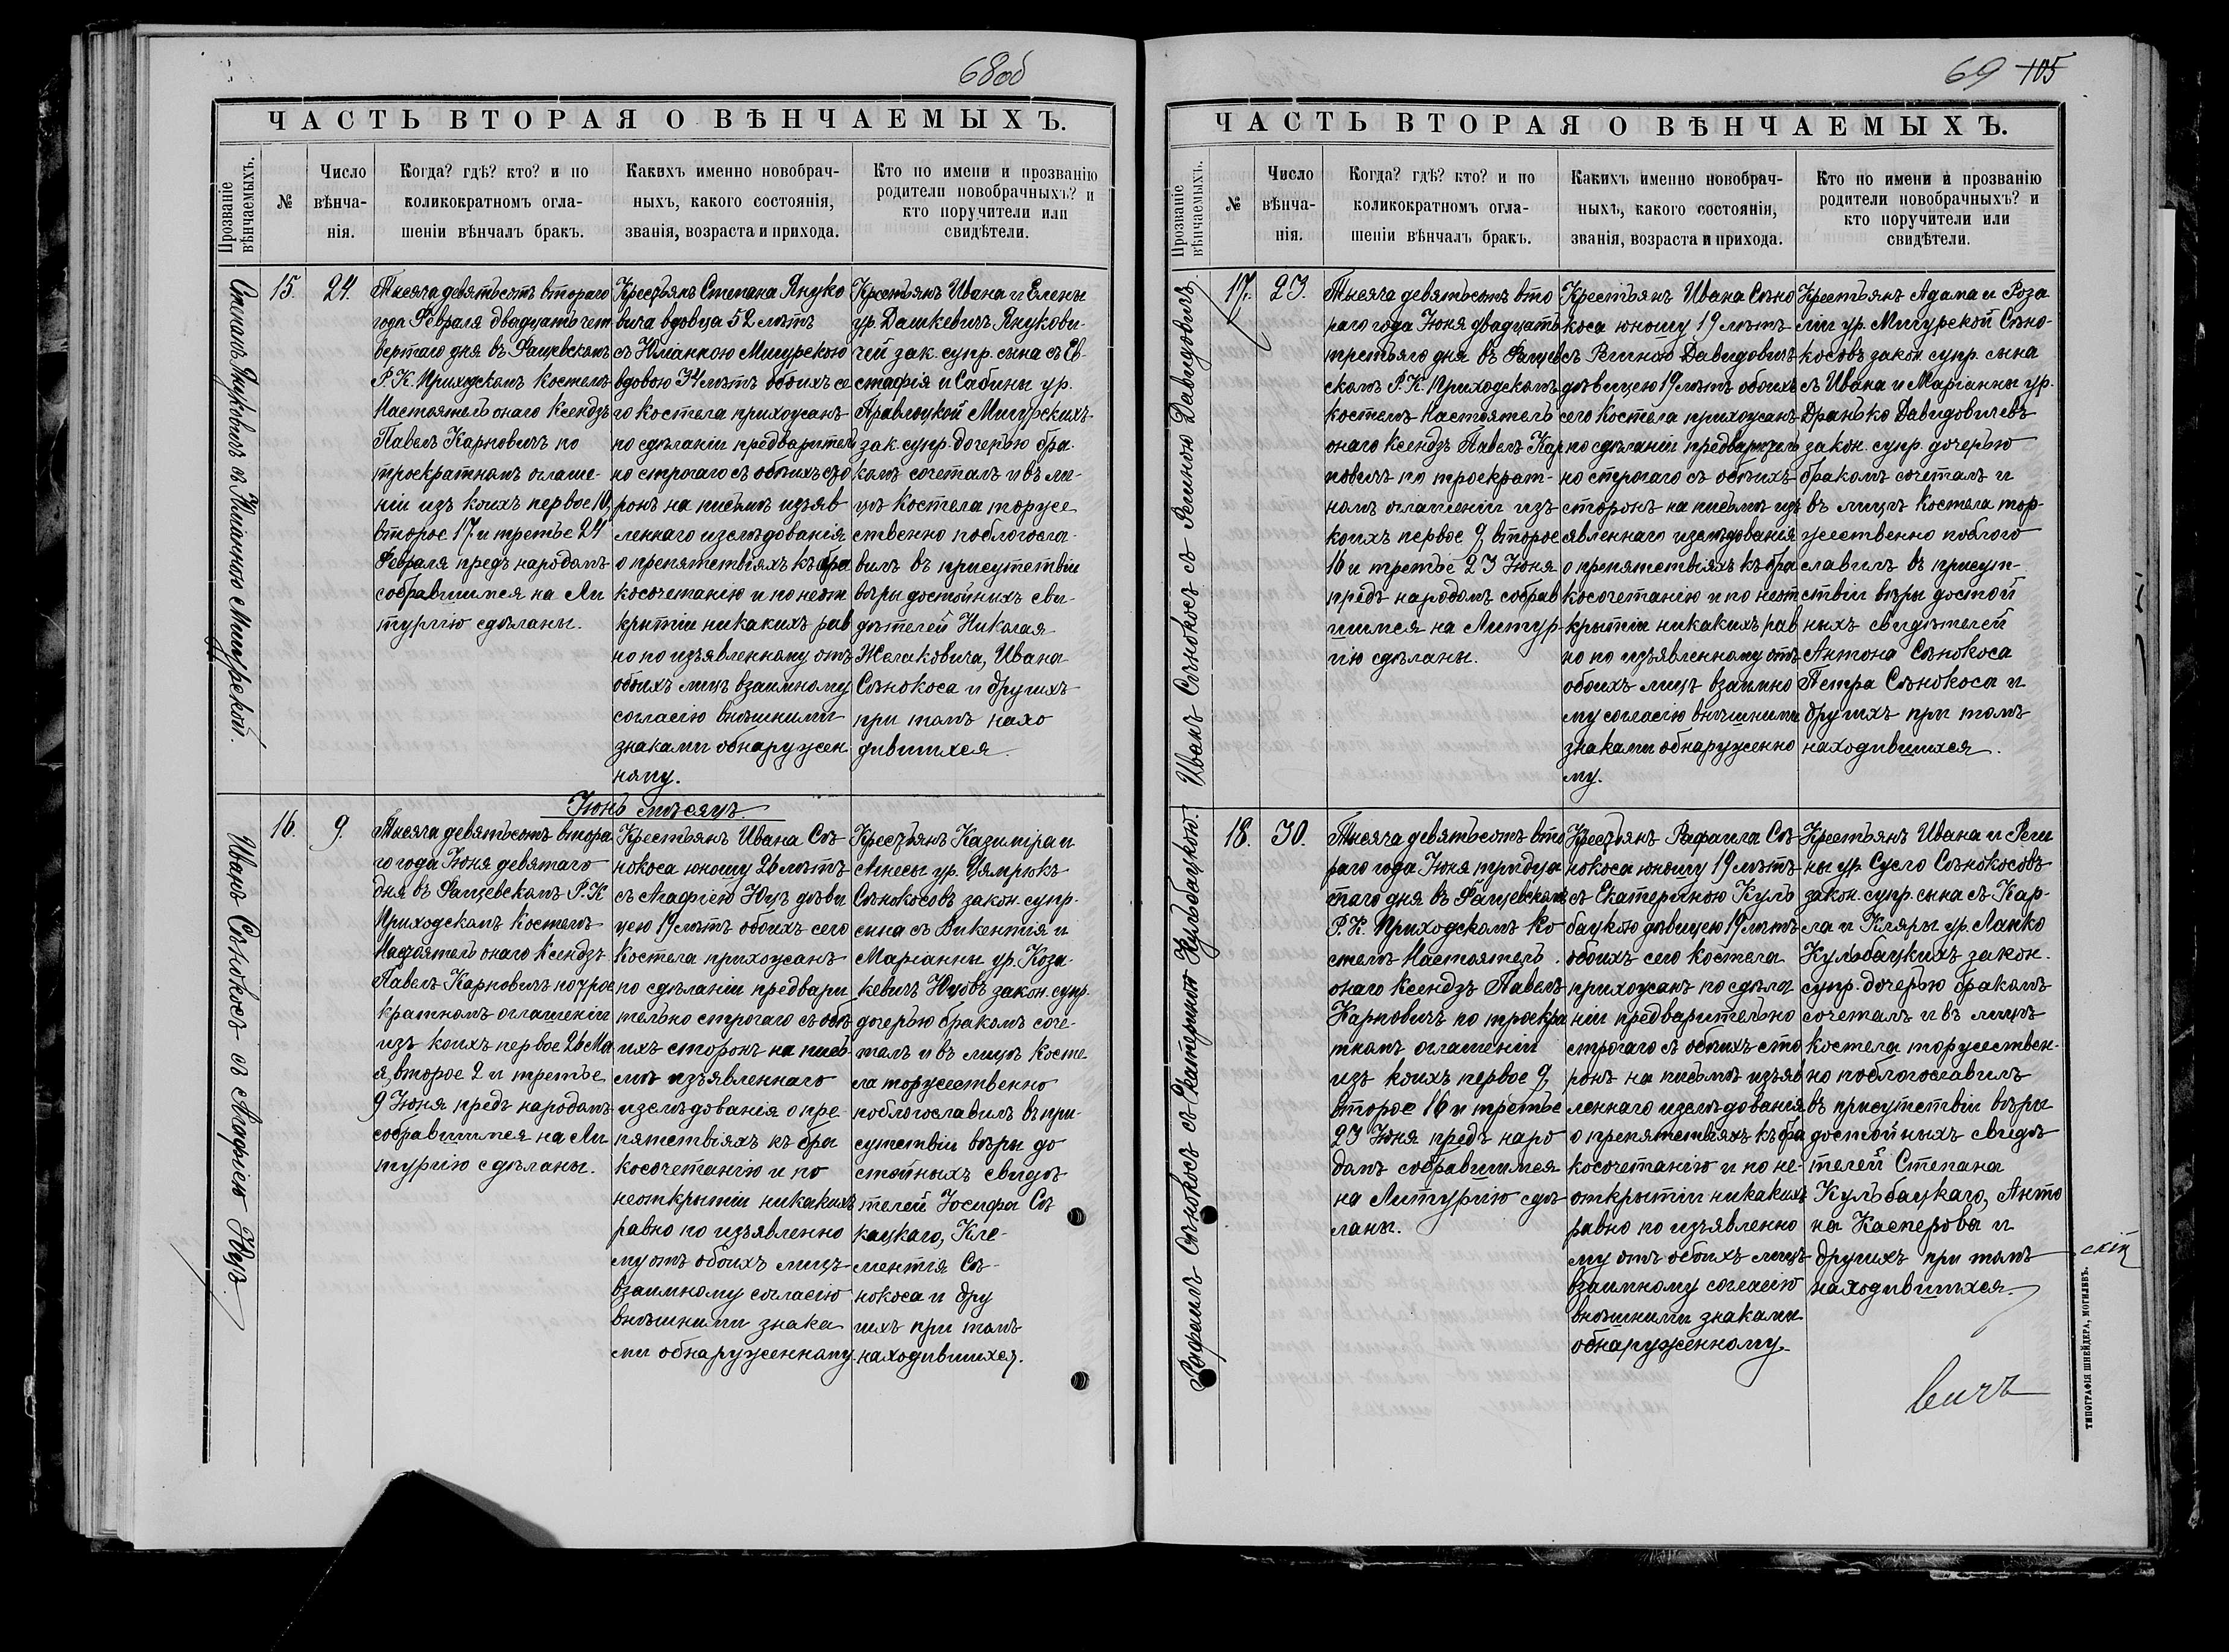 68об
ЧАСТЬ ВТОРАЯ О ВѢНЧАЕМЫХЪ.
Прозваніе вѣнчаемыхъ.
№
Число
вѣнча-
нія.
Когда? гдѣ? кто? и по
коликократномъ огла-
шеніи вѣнчалъ бракъ.
Какихъ именно новобрач-
ныхъ, какого состоянія,
званія, возраста и прихода.
Кто по имени и прозванію
родители новобрачныхъ? и
кто поручители или
свидѣтели.
Степанъ Януковичъ съ Юліанною Мигурской.
15.
24.
Тысяча девятьсотъ втораго
года Февраля двадцать чет
вертаго дня въ Фащевскомъ
Р. К. Приходскомъ Костелѣ
Настоятель онаго Ксендзъ
Павелъ Карповичъ по
троекратномъ оглаше-
ніи изъ коихъ первое 10,
второе 17 и третье 24
Февраля предъ народомъ
собравшимся на Ли
тургію сдѣланы.
Крестьянъ Степана Януко
вича вдовца 52 лѣтъ
съ Юліанною Мигурскою
вдовою 34 лѣтъ обоихъ се
го костела прихожанъ
по сдѣланіи предварител
но строгаго съ обоихъ сто
ронъ на письмѣ изъяв
леннаго изслѣдованія
о препятствіяхъ къ бра
косочетанію и по неот
крытіи никакихъ рав
но по изъявленному отъ
обоихъ лицъ взаимному
согласію внѣшними
знаками обнаружен
ному.
Крестьянъ Ивана и Елены
ур. Дашкевичъ Янукови-
чей зак. супр. сына съ Ев-
стафія и Сабины ур.
Мигурскихъ
зак. супр. дочерью бра-
комъ сочеталъ и въ ли-
цѣ Костела торже
ственно поблагосла-
вилъ въ присутствіи
вѣры достойныхъ сви-
дѣтелей Николая
Желаковича, Ивана
Сѣнокоса и другихъ
при томъ нахо
дившихся.
Іюнь мѣсяцъ.
Иванъ Сѣнокосъ съ Агафіею Юцъ.
16.
9.
Тысяча девятьсотъ втора
го года Іюня девятаго
дня въ Фащевскомъ Р. К
Приходскомъ Костелѣ
Настоятель онаго Ксендзъ
Павелъ Карповичъ по трое
кратномъ оглашеніи
изъ коихъ первое 26 Ма
я, второе 2 и третье
9 Іюня предъ народомъ
собравшимся на Ли
тургію сдѣланы.
Крестьянъ Ивана Сѣ
нокоса юношу 26 лѣтъ
съ Агафіею Юцъ дѣви
цею 19 лѣтъ обоихъ сего
Костела прихожанъ
по сдѣланіи предвари
тельно строгаго съ обо
ихъ сторонъ на пись
мѣ изъявленнаго
изслѣдованія о пре-
пятствіяхъ къ бра
косочетанію и по
неоткрытіи никакихъ
равно по изъявленно
му отъ обоихъ лицъ
взаимному согласію
внѣшними знака
ми обнаруженному.
Крестьянъ Казиміра и
Агнесы ур. Цямрюкъ
Сѣнокосовъ закон. супр.
сына съ Викентія и
Маріанны ур. Коза-
кевичъ Юцовъ закон. супр.
дочерью бракомъ соче-
талъ и въ лицѣ Косте
ла торжественно
поблагославилъ въ при-
сутствіи вѣры до
стойныхъ свидѣ
телей Іосифа Сѣ
кацкаго, Кле-
ментія Сѣ-
нокоса и дру
гихъ при томъ
находившихся.
69 105
ЧАСТЬ ВТОРАЯ О ВѢНЧАЕМЫХЪ.
Прозваніе вѣнчаемыхъ.
№
Число
вѣнча-
нія.
Когда? гдѣ? кто? и по
коликократномъ огла-
шеніи вѣнчалъ бракъ.
Какихъ именно новобрач-
ныхъ, какого состоянія,
званія, возраста и прихода.
Кто по имени и прозванію
родители новобрачныхъ? и
кто поручители или
свидѣтели.
Иванъ Сѣнокосъ съ Региною Давидовичъ.
17.
23.
Тысяча девятьсотъ вто
раго года Іюня двадцать
третьяго дня въ Фащев
скомъ Р. К. Приходскомъ
костелѣ Настоятель
онаго Ксендзъ Павелъ Кар
повичъ по троекрат-
номъ оглашеніи изъ
коихъ первое 9, второе
16 и третье 23 Іюня
предъ народомъ собрав
шимся на Литур-
гію сдѣланы.
Крестьянъ Ивана Сѣно
коса юношу 19 лѣтъ
съ Региною Давидовичъ
дѣвицею 19 лѣтъ обоихъ
сего Костела прихожанъ
по сдѣланіи предварител
но строгаго съ обоихъ
сторонъ на письмѣ изъ
явленнаго изслѣдованія
о препятствіяхъ къ бра
косочетанію и по неот
крытіи никакихъ рав
но по изъявленному отъ
обоихъ лицъ взаимно
му согласію внѣшними
знаками обнаруженно
му.
Крестьянъ Адама и Роза
ліи ур. Мигурской Сѣно-
косовъ закон. супр. сына
съ Ивана и Маріанны ур.
Дранько Давидовичевъ
закон. супр. дочерью
бракомъ сочеталъ и
въ лицѣ Костела тор-
жественно поблаго
славилъ въ присут-
ствіи вѣры достой
ныхъ свидѣтелей
Антона Сѣнокоса
Петра Сѣнокоса и
другихъ при томъ
находившихся.
Рафаилъ Сѣнокосъ съ Екатериною Кульбацкою.
18.
30.
Тысяча девятьсотъ вто
раго года Іюня тридца
таго дня въ Фащевскомъ
Р. К. Приходскомъ Ко
стелѣ Настоятель
онаго Ксендзъ Павелъ
Карповичъ по троекра
тномъ оглашеніи
изъ коихъ первое 9,
второе 16 и третье
23 Іюня предъ наро
домъ собравшимся
на Литургію сдѣ
ланы.
Крестьянъ Рафаила Сѣ
нокоса юношу 19 лѣтъ
съ Екатериною Куль
бацкою дѣвицею 19 лѣтъ
обоихъ сего Костела
прихожанъ по сдѣла
ніи предварительно
строгаго съ обоихъ сто
ронъ на письмѣ изъяв
леннаго изслѣдованія
о препятствіяхъ къ бра
косочетанію и по не-
открытіи никакихъ
равно по изъявленно
му отъ обоихъ лицъ
взаимному согласію
внѣшними знаками
обнаруженному.
Крестьянъ Ивана и Реги
ны ур. Сусло Сѣнокосовъ
закон. супр. сына съ Кар-
ла и Кляры ур. Лапко
Кульбацкихъ закон.
супр. дочерью бракомъ
сочеталъ и въ лицѣ
костела торжествен-
но поблогославилъ
въ присутствіи вѣры
достойныхъ свидѣ
телей Степана
Кульбацкаго, Анто
на Касперова и
другихъ при томъ
находившихся.
скій
вичъ
ТИПОГРАФІЯ ШНЕЙДЕРА, МОГИЛЕВЪ.